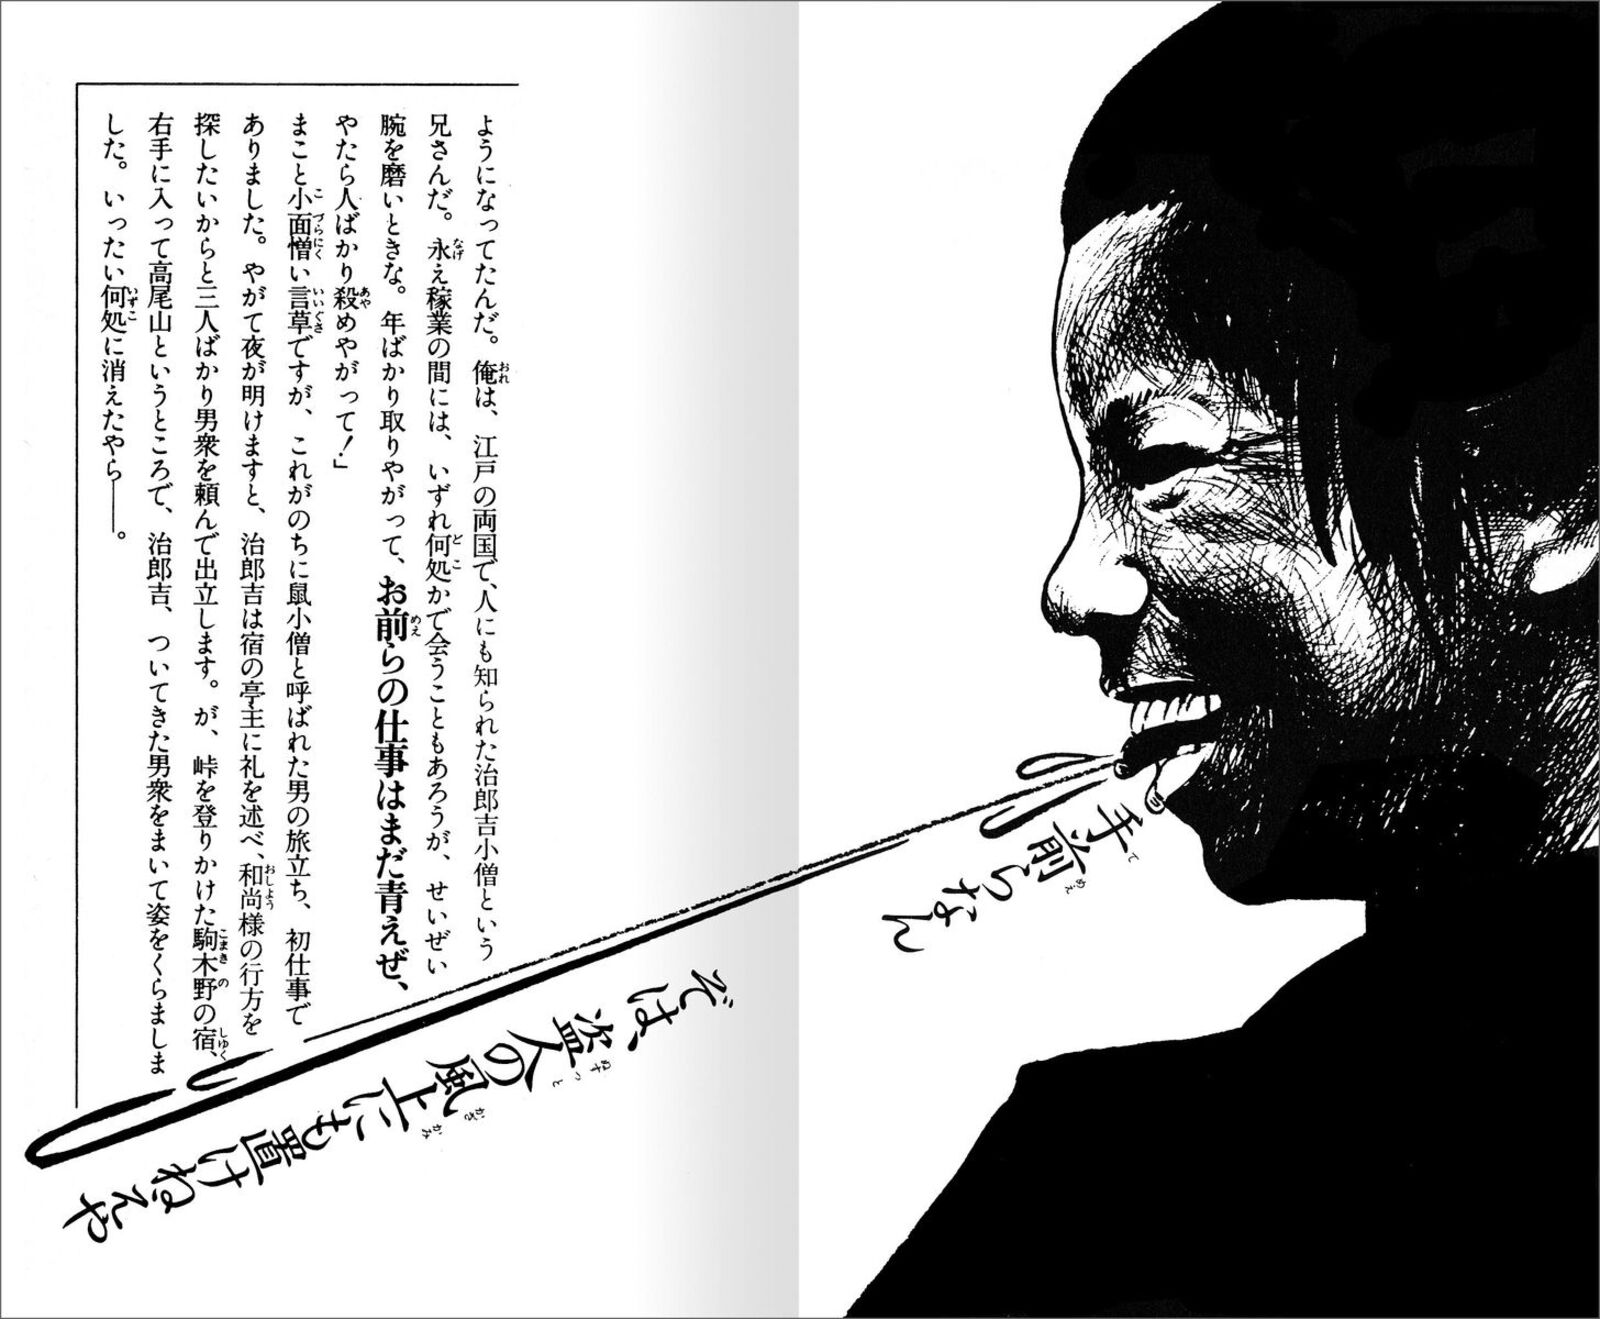 ようになってたんだ。俺は、江戸の両国で、人にも知られた治郎吉小僧という
兄さんだ。永え稼業の間には、いずれ何処かで会うこともあろうが、せいぜい
腕を磨いときな。年ばかり取りやがって、お前らの仕事はまだ青えぜ、
やたら人ばかり殺めやがって！」
まこと小面憎い言草ですが、これがのちに鼠小僧と呼ばれた男の旅立ち、初仕事で
ありました。やがて夜が明けますと、治郎吉は宿の亭主に礼を述べ、和尚様の行方を
探したいからと三人ばかり男衆を頼んで出立します。が、峠を登りかけた駒木野の宿、
右手に入って高尾山というところで、治郎吉、ついてきた男衆をまいて姿をくらましま
した。いったい何処に消えたやら――。
手前らなん
ぞは、盗人の風上にも置けねえや